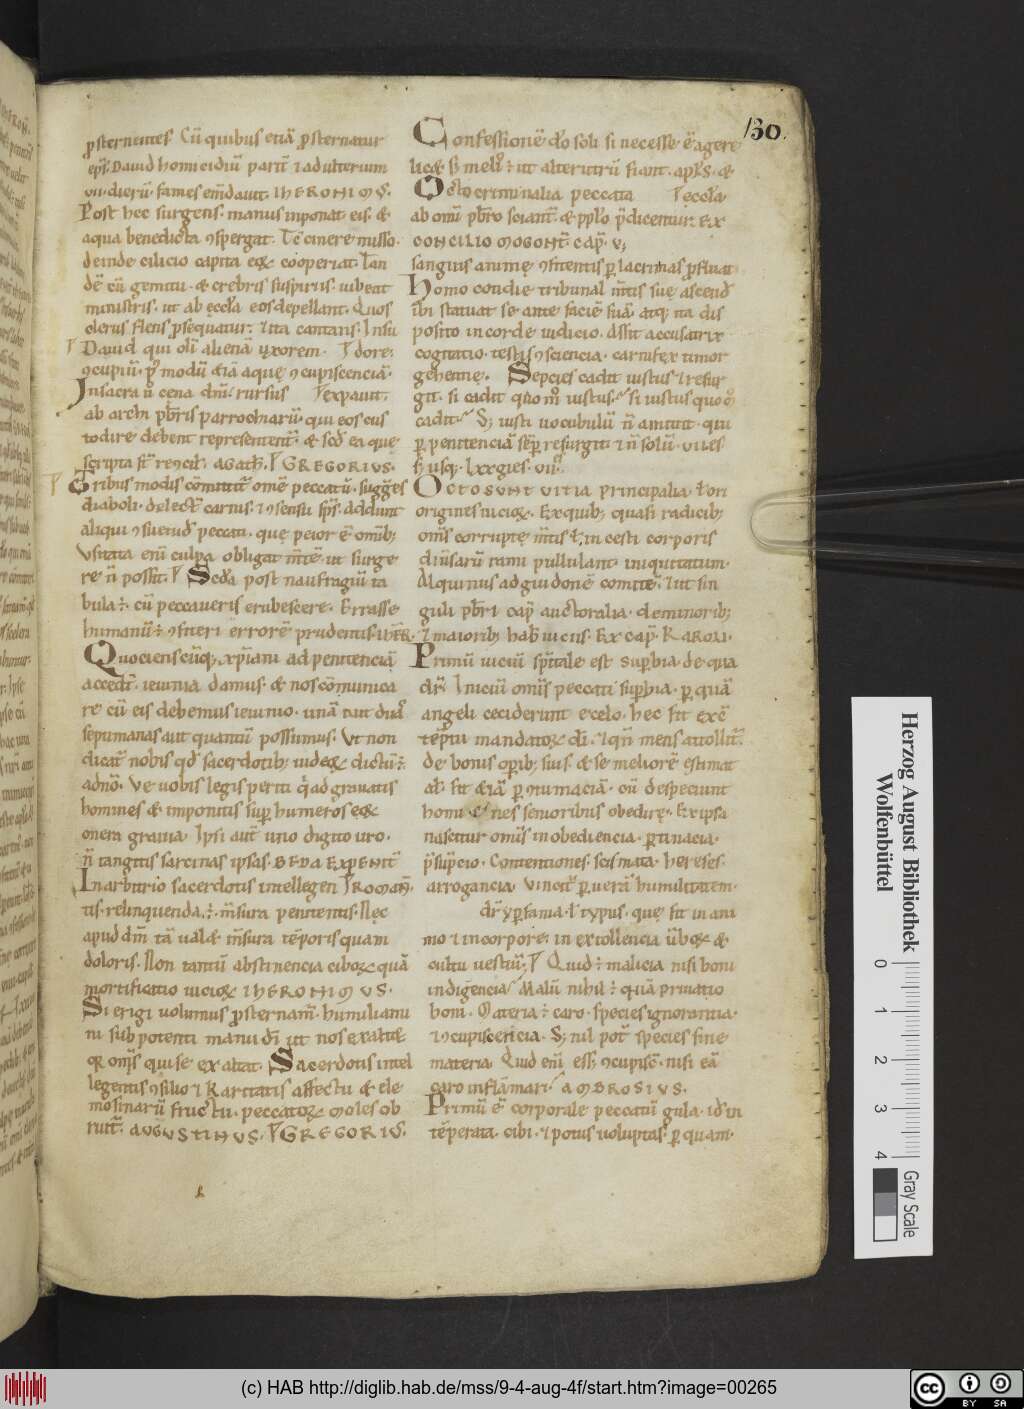 130.
prosternentes. Cū quibus etiā prosternatur
epł. Dauid homicidiū pariť ⁊ adulterium
vii. dierū fames em̄dauit. IHERONIMVS.
Post hec surgens. manus inponat eis. &
aqua benedicta ɔspergat. Tc̄ cinere misso.
deinde cilicio capita eoꝝ cooperiat. Tan
dē cū gemitu. & crebris suspiriis. iubeat
ministris. ut ab eccła eos depellant. Quos
clerus flens prosequatur.
Dauid qui oli alienā uxorem.
ab archipbr̄is parrochiarū. qui eos eius
todire debent representent̄. & scd̄ ea que
scripta st̄ GREGORIVS.
Tribus modis cōmittit̄ omē peccatū. sugges
diaboli. delect̄ carnis. ⁊ ɔsensu sp̄s. Addunt
aliqui ɔsuetud̄ peccati. que peior ē omib;
Vsitata enī culpa obligat mētē. ut surge
re n̄ possit. Scd̄a post naufragiū ta
bula ÷. cū peccaueris erubescere. Errasse
humanū ÷ ɔfiteri errorē prudentis.
Quociens cūq; xp̄iani ad penitenciā
accedt̄. ieiunia damus. & nos cōmunica
re cū eis debemus ieiunio. unā aut duaȝ
septimanas aut quantū possumus. Vt non
dicat̄ nobis qd̄ sacerdotib; iudeoꝝ dictū ÷
a dn̄o. Ve uobis legis periti q̇ adgrauatis
homines & imponitis sup̄ humeros eoꝝ
onera grauia. Ipsi aut̄ uno digito uro.
n̄ tangitis sarcinas ipsas. BEDA
In arbitrio sacerdotis intellegen
tis. relinquenda ÷. m̄sura penitentis. Nec
apud dm̄ tā ualet m̄sura tēporis quam
doloris. Non tantū abstinencia ciboꝝ quā
mortificatio uicioꝝ. IHERONIMVS.
Si erigi uolumus prosternam̄. humiliami
ni sub potenti manu dī ut nos exaltet
qꝛ om̄s qui se exaltat. Sacerdotis intel
legentis ɔsilio ⁊ karitatis affectu & ele
mosinarū fructu. peccatoꝝ moles ob
ruit̄. AVGVSTINVS. GREGORIVS.
Confessionē do soli si necesse ē agere
Octo criminalia peccata
ab omī pbr̄o sciant̄. & pplo p̄dicentur. Ex
CONCILIO MOGONT̄. CAP̄. V.
sanguis anime ɔfitentis p̄ lacrimas profluat
Homo condie tribunal m̄tis sue ascend̄
ibi statuat se ante faciē suā. atq; ita dis
posito in corde iudicio. Assit accusatrix
cogitatio. testis ɔsciencia. carnifex timor
gehenne. Sepcies cadit iustus ⁊ resur
git. si cadit quom̊ iustus. Si iustus quo
cadit. S; iusti uocabulū n̄ amittit. qui
p̄ penitenciā semp̄ resurgit. ⁊ n̄ solū. vii.es
s; usq; lxxgies. vii.
OCTO SVNT VITIA principalia. ł ori
origines uicioꝝ. Ex quib; quasi radicib;
om̄s corrupte m̄tis ł incesti corporis
diu̅sarū rami pullulant. iniquitatum.
Alquinus ad guidonē comitē. ⁊ ut sin
guli pbr̄i cap̄ auctoralia. de minorib;
⁊ maiorib; hab̄ uiciis. Ex cap̄. KAROLI.
Primū uiciū sp̄itale est superbia. de qua
dr̄. Iniciū omīs peccati sup̄bia. p̄ quā
angeli ceciderunt e celo. hec fit exc̄
tēptu mandatoꝝ dī. ⁊ qn̄ mens attollit̄.
de bonis op̄ib; suis. & se meliorē estimat
al. fit etiā p̄ ɔtumaciā. cū despeciunt
homines senioribus obedire. Ex ipsa
nascitur om̄is inobediencia. p̄tinacia.
Contentiones. scismata. hereses.
arrogancia. Vincit̄ p̄ ueram humilitatem.
dr̄ yp̄fania. ł typus. que fit in ani
mo ⁊ in corpore. in excellencia ū̄boꝝ &
cultu uestiū. Quid ÷ malicia nisi boni
indigencia. Malū nihil ÷ quā priuatio
boni. Materia ÷ caro. species ignorantia.
⁊ ɔcupiscencia. S; nil pot̄ species sine
materia. Quid enī ess; ɔcupisc̄. nisi eā
caro inflāmari. AMBROSIVS.
Primū ē corporale peccatū gula. id ÷ in
tēperata. cibi. ⁊ potus uoluptas. p̄ quam.
Herzog August Bibliothek
Wolfenbüttel
0 1 2 3 4
Gray Scale
(c) HAB http://diglib.hab.de/mss/9-4-aug-4f/start.htm?image=00265
cc BY SA